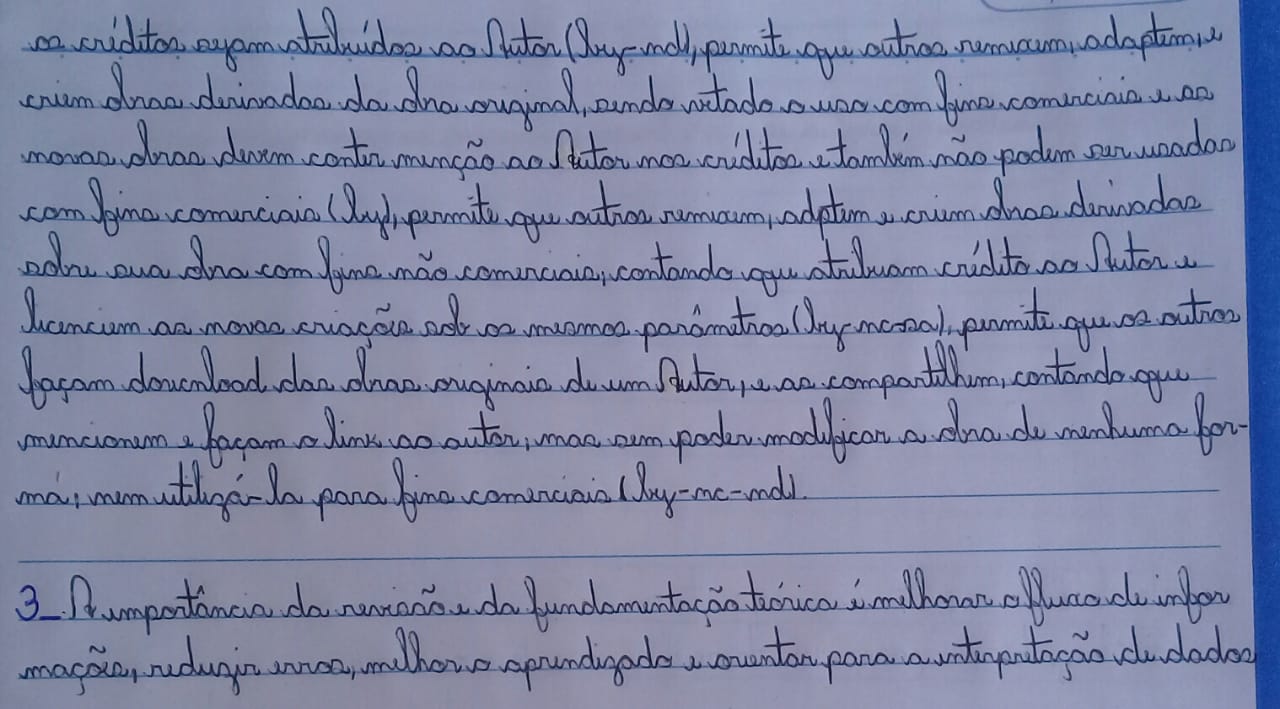 os créditos sejam atribuídos ao Autor (by-nd), permite que outros remixem, adaptem, e
criem obras derivadas da obra original, sendo vetado o uso com fins comerciais e as
novas obras devem conter menção ao Autor nos créditos e também não podem ser usadas
com fins comerciais (by), permite que outros remixem, adptem e criem obras derivadas
sobre sua obra com fins não comerciais, contando que atribuam crédito ao Autor e
licenciem as novas criações sob os mesmos parâmetros (by-nc-sa), permite que os outros
façam download das obras originais de um Autor, e as compartilhem, contando que
mencionem e façam o link ao autor, mas sem poder modificar a obra de nenhuma for-
má, nem utilizá-la para fins comerciais (by-nc-nd).
3_. A importância da revisão e da fundamentação teórica é melhorar o fluxo de infor
mações, reduzir erros, melhor o aprendizado e orientar para a interpretação de dados